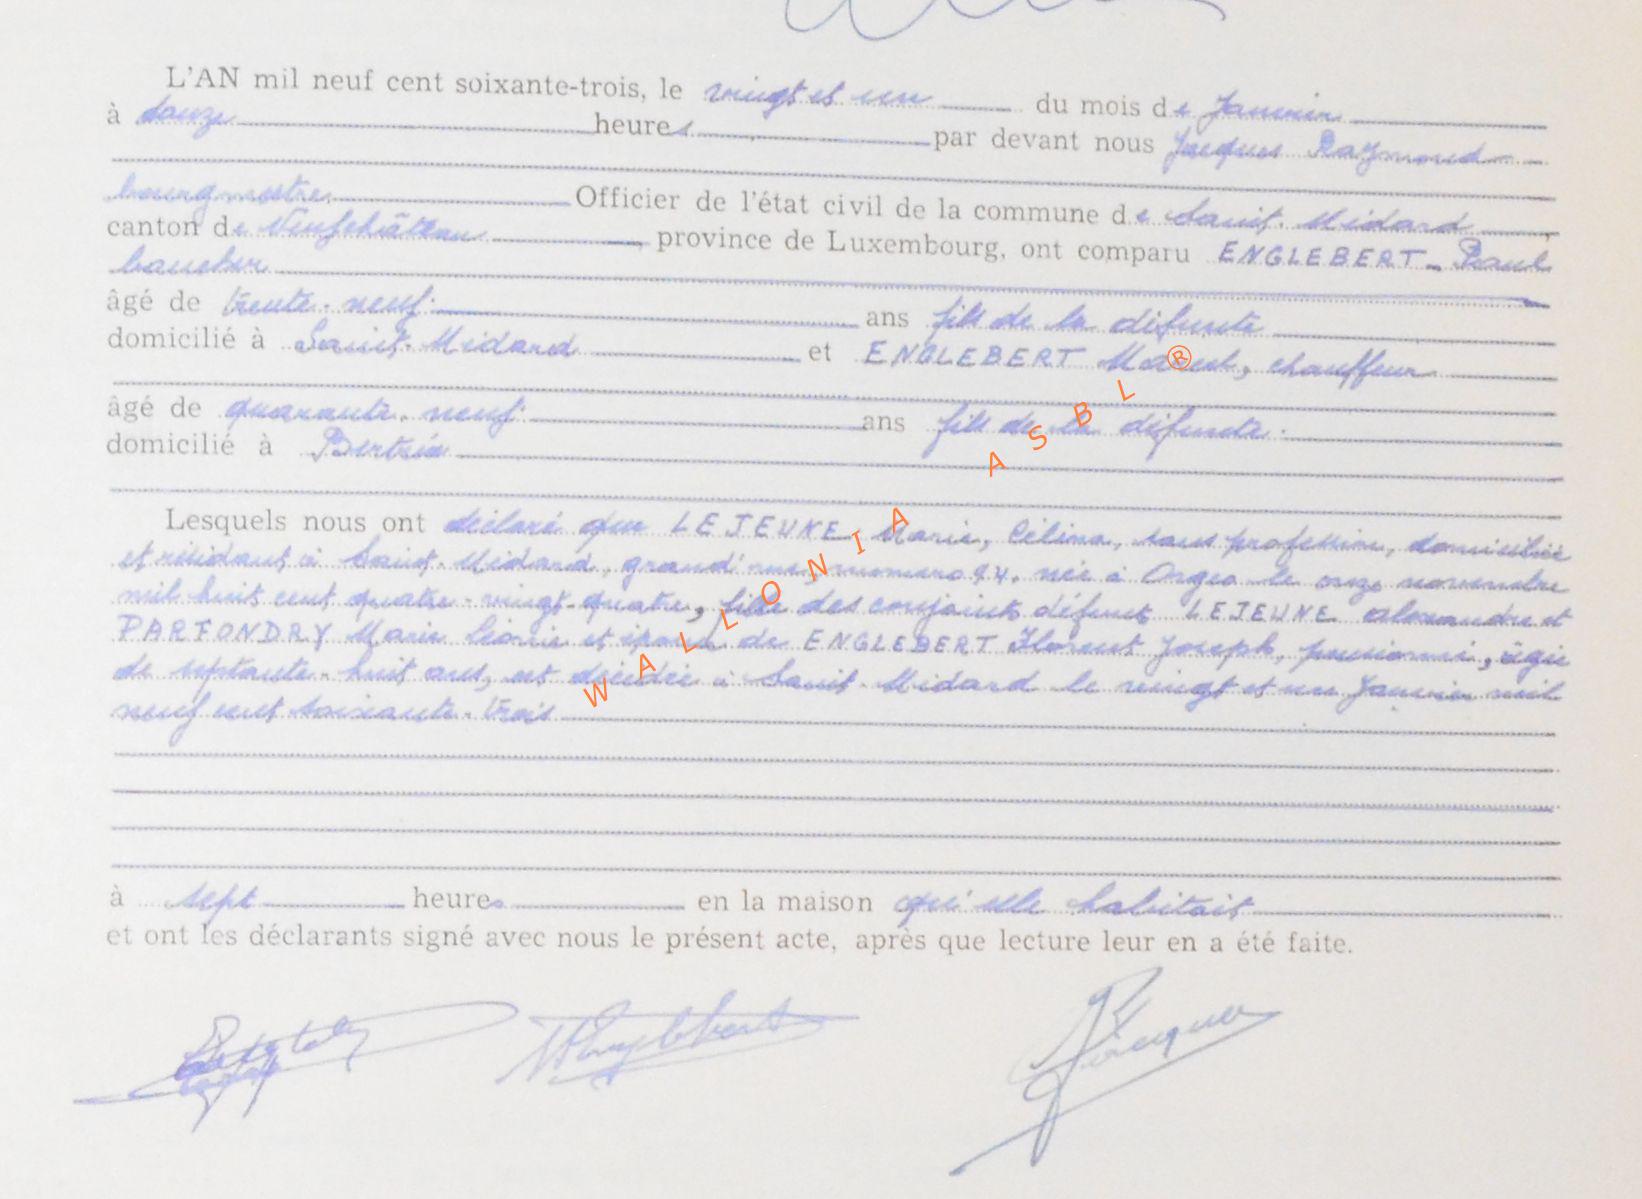 L'AN mil neuf cent soixante-trois, le vingt et un du mois de Janvier
à douze heures par devant nous Jacques Raymond
bourgmestre Officier de l'état civil de la commune de Saint-Médard,
canton de Neufchâteau, province de Luxembourg, ont comparu ENGLEBERT - Paul
boucher
âgé de trente-neuf ans fils de la défunte
domicilié à Saint-Médard et ENGLEBERT Marcel, chauffeur
âgé de quarante-neuf ans fils de la défunte.
domicilié à Bertrix
Lesquels nous ont déclaré que LEJEUNE Marie, Célina, sans profession, domiciliée
et résidant à Saint-Médard, grand'rue, numéro 94. née à Orgeo le onze novembre
mil huit cent quatre-vingt-quatre, fille des conjoints défunts LEJEUNE Alexandre et
PARFONDRY Marie Léonie et épouse de ENGLEBERT Florent Joseph, pensionné, âgée
de septante-huit ans, est décédée à Saint-Médard le vingt et un Janvier mil
neuf cent soixante-trois
à sept heures en la maison qu'elle habitait
et ont les déclarants signé avec nous le présent acte, après que lecture leur en a été faite.
MEnglebert RJacques
WALLONIA ASBL ®